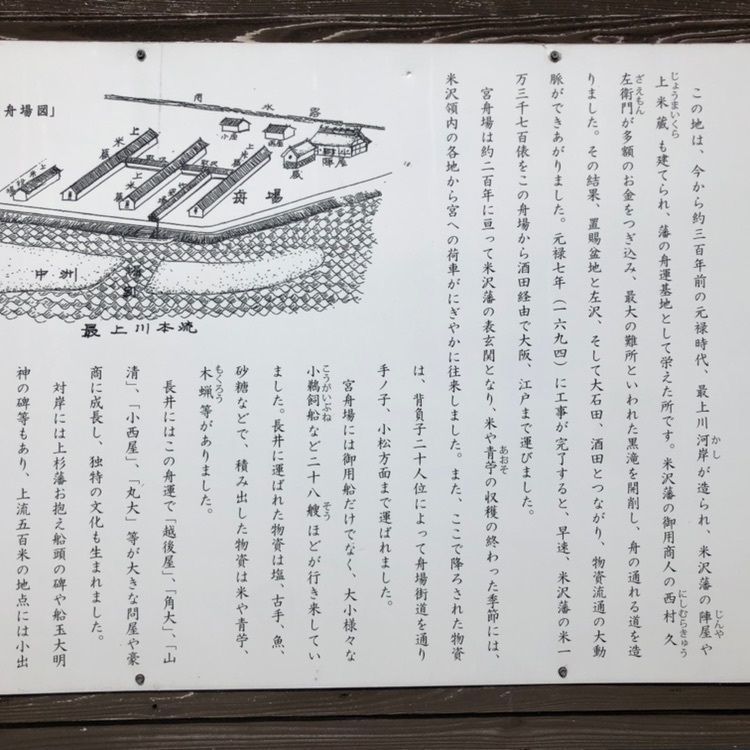 この地は、今から約三百年前の元禄時代、最上川河岸が造られ、米沢藩の陣屋や
上米蔵も建てられ、藩の舟運基地として栄えた所です。米沢藩の御用商人の西村久
左衛門が多額のお金をつぎ込み、最大の難所といわれた黒滝を開削し、舟の通れる道を造
りました。その結果、置賜盆地と左沢、そして大石田、酒田とつながり、物資流通の大動
脈ができあがりました。元禄七年(一六九四)に工事が完了すると、早速、米沢藩の米一
万三千七百俵をこの舟場から酒田経由で大阪、江戸まで運びました。
宮舟場は約二百年に亘って米沢藩の表玄関となり、米や青苧の収穫の終わった季節には、
米沢領内の各地から宮への荷車がにぎやかに往来しました。また、ここで降ろされた物資
は、背負子二十人位によって舟場街道を通り
手ノ子、小松方面まで運ばれました。
宮舟場には御用船だけでなく、大小様々な
小鵜飼船など二十八艘ほどが行き来してい
ました。長井に運ばれた物資は塩、古手、魚、
砂糖などで、積み出した物資は米や青苧、
木蝋等がありました。
長井にはこの舟運で「越後屋」、「角大」、「山
清」、「小西屋」、「丸大」等が大きな問屋や豪
商に成長し、独特の文化も生まれました。
対岸には上杉藩お抱え船頭の碑や船玉大明
神の碑等もあり、上流五百米の地点には小出
かし
じんや
じょうまいくら
にしむらきゅう
ざえもん
あおそ
こうがいぶね
そう
もくろう
舟場図」
用水路
小屋
蔵
陣屋
上米蔵
上米蔵
舟場
中洲
最上川本流